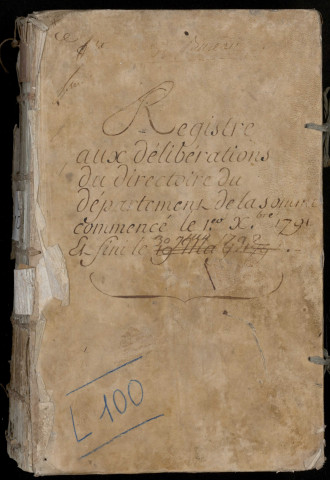 Registre
aux délibérations
du directoire du
département de la somme
commencé le 1.er X.bre 1791
Et fini le
L 100